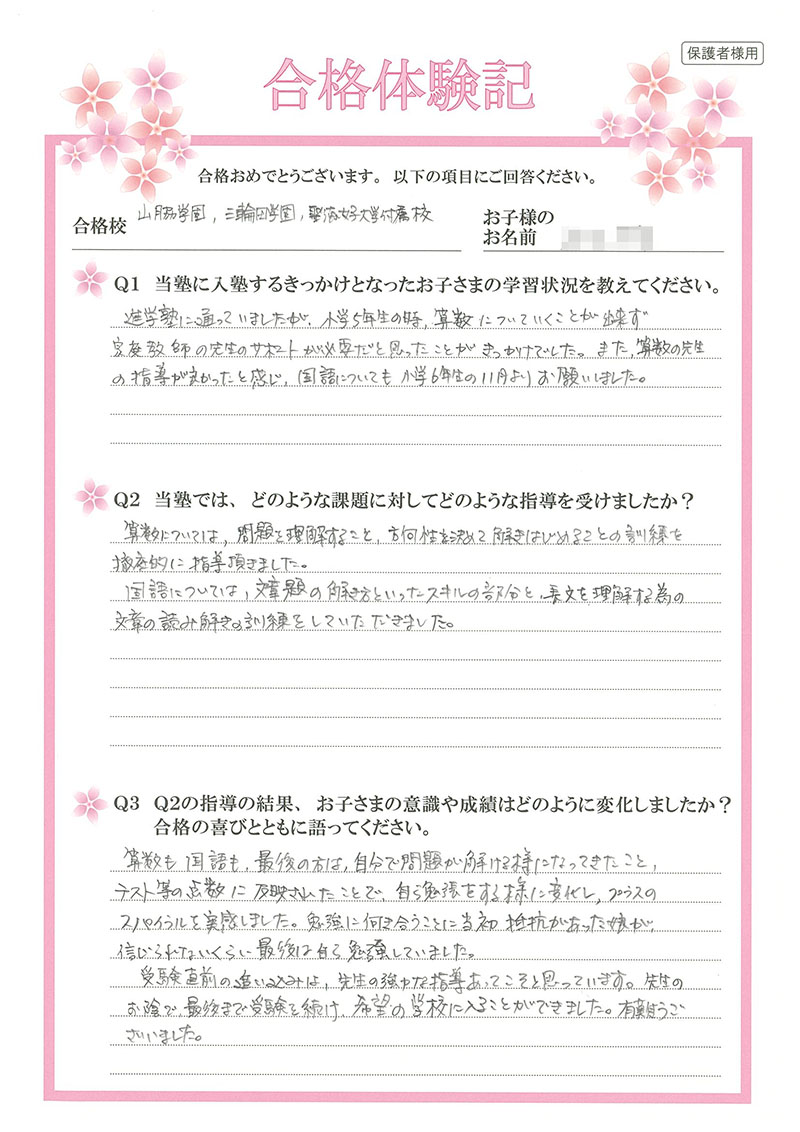 保護者様用
合格体験記
合格おめでとうございます。以下の項目にご回答ください。
合格校 山脇学園，三輪田学園，聖徳女子大学付属校
お子様の
お名前
Q1 当塾に入塾するきっかけとなったお子さまの学習状況を教えてください。
進学塾に通っていましたが、小学5年生の時，算数についていくことが出来ず
家庭教師の先生のサポートが必要だと思ったことがきっかけでした。また，算数の先生
の指導が良かったと感じ，国語についても小学6年生の11月よりお願いしました。
Q2 当塾では、どのような課題に対してどのような指導を受けましたか？
算数については，問題を理解すること，方向性を決めて解きはじめることの訓練を
徹底的に指導頂きました。
国語については，文章題の解き方といったスキルの部分と，長文を理解する為の
文章の読み解きの訓練をしていただきました。
Q3 Q2の指導の結果、お子さまの意識や成績はどのように変化しましたか？
合格の喜びとともに語ってください。
算数も国語も，最後の方は，自分で問題が解ける様になってきたこと，
テスト等の点数に反映されたことで，自ら勉強をする様に変化し，プラスの
スパイラルを実感しました。勉強に向き合うことに当初抵抗があった娘が，
信じられないくらい最後は自ら勉強していました。
受験直前の追い込みは，先生の強力な指導あってこそと思っています。先生の
お陰で，最後まで受験を続け，希望の学校に入ることができました。有難うご
ざいました。